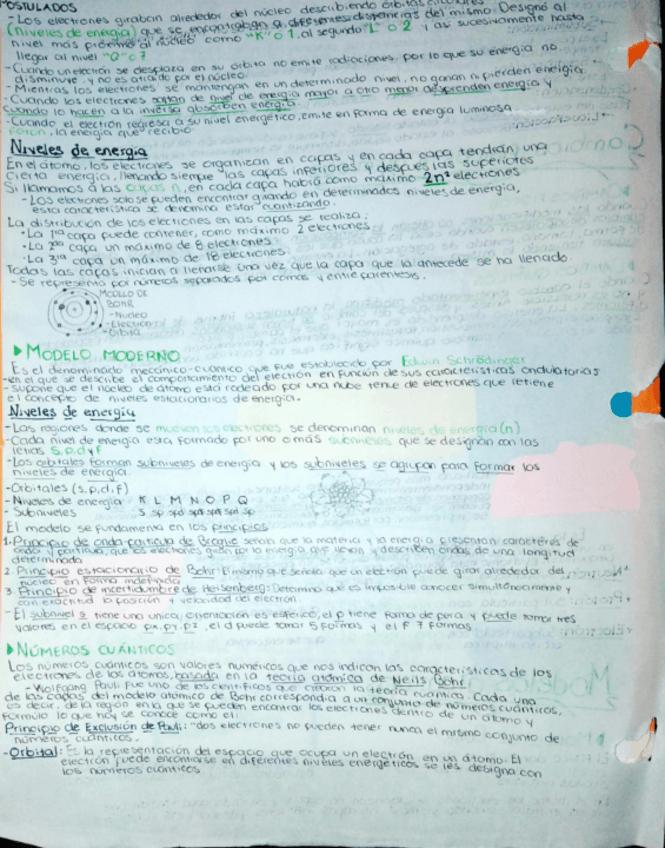 POSTULADOS
-Los electrones giraban alrededor del núcleo describiendo órbitas circulares
(niveles de energía) que se encontraban a diferentes distancias del mismo. Designó al
nivel más próximo al núcleo como "K" o 1, al segundo "L" o 2 y así sucesivamente hasta
llegar al nivel "Q" o 7
-Cuando un electrón se desplaza en su órbita no emite radiaciones, por lo que su energía no
disminuye y no es atraído por el núcleo
-Mientras los electrones se mantengan en un determinado nivel, no ganan ni pierden energía
-Cuando los electrones saltan de nivel de energía mayor a otro menor desprenden energía y
cuando lo hacen a la inversa absorben energía.
-Cuando el electrón regresa a su nivel energético, emite en forma de energía luminosa
Fotón, la energía que recibió
Niveles de energía
En el átomo, los electrones se organizan en capas y en cada capa tendrán una
cierta energía, llenando siempre las capas inferiores y después las superiores
Si llamamos a las capas n, en cada capa habrá como máximo 2n² electrones
-Los electrones solo se pueden encontrar girando en determinados niveles de energía,
esta característica se denomina estar cuantizando.
La distribución de los electrones en las capas se realiza:
·La 1ra capa puede contener, como máximo 2 electrones
·La 2da capa un máximo de 8 electrones
·La 3ra capa un máximo de 18 electrones
Todas las capas inician a llenarse una vez que la capa que la antecede se ha llenado
-Se representa por números separados por comas y entre paréntesis.
MODELO DE
BOHR
-Núcleo
-Electrón
-Órbita
▶MODELO MODERNO
Es el denominado mecánico-cuántico que fue establecido por Edwin Schrödinger
-en el que se describe el comportamiento del electrón en función de sus características ondulatorias
-supone que el núcleo de átomo está rodeado por una nube tenue de electrones que retiene
el concepto de niveles estacionarios de energía.
Niveles de energía
-Las regiones donde se mueven los electrones se denominan niveles de energía (n)
-Cada nivel de energía está formado por uno o más subniveles que se designan con las
letras s,p,d y f
-Los orbitales forman subniveles de energía y los subniveles se agrupan para formar los
niveles de energía.
-Orbitales (s,p,d,f)
-Niveles de energía K L M N O P Q
-Subniveles s sp spd spdf spdf spd sp
El modelo se fundamenta en los principios
1. Principio de onda-partícula de Broglie señala que la materia y la energía presentan caracteres de
onda y partícula, que los electrones giran por la energía que llevan y describen ondas de una longitud
determinada
2. Principio estacionario de Bohr: El mismo que señala que un electrón puede girar alrededor del
núcleo en forma indefinida
3. Principio de incertidumbre de Heisenberg: Determinó que es imposible conocer simultáneamente y
con exactitud la posición y velocidad del electrón
-El subnivel s tiene una única orientación es esférico, el p tiene forma de pera y puede tomar tres
valores en el espacio px, py, pz, el d puede tomar 5 formas y el f 7 formas
▶NÚMEROS CUÁNTICOS
Los números cuánticos son valores numéricos que nos indican las características de los
electrones de los átomos, basada en la teoría atómica de Neils Bohr
-Wolfgang Pauli fue uno de los científicos que crearon la teoría cuántica. Cada una
de las capas del modelo atómico de Bohr correspondía a un conjunto de números cuánticos,
es decir, de la región en la que se pueden encontrar los electrones dentro de un átomo y
formuló lo que hoy se conoce como el:
Principio de Exclusión de Pauli: "dos electrones no pueden tener nunca el mismo conjunto de
números cuánticos.
-Orbital: Es la representación del espacio que ocupa un electrón en un átomo. El
electrón puede encontrarse en diferentes niveles energéticos se les designa con
los números cuánticos